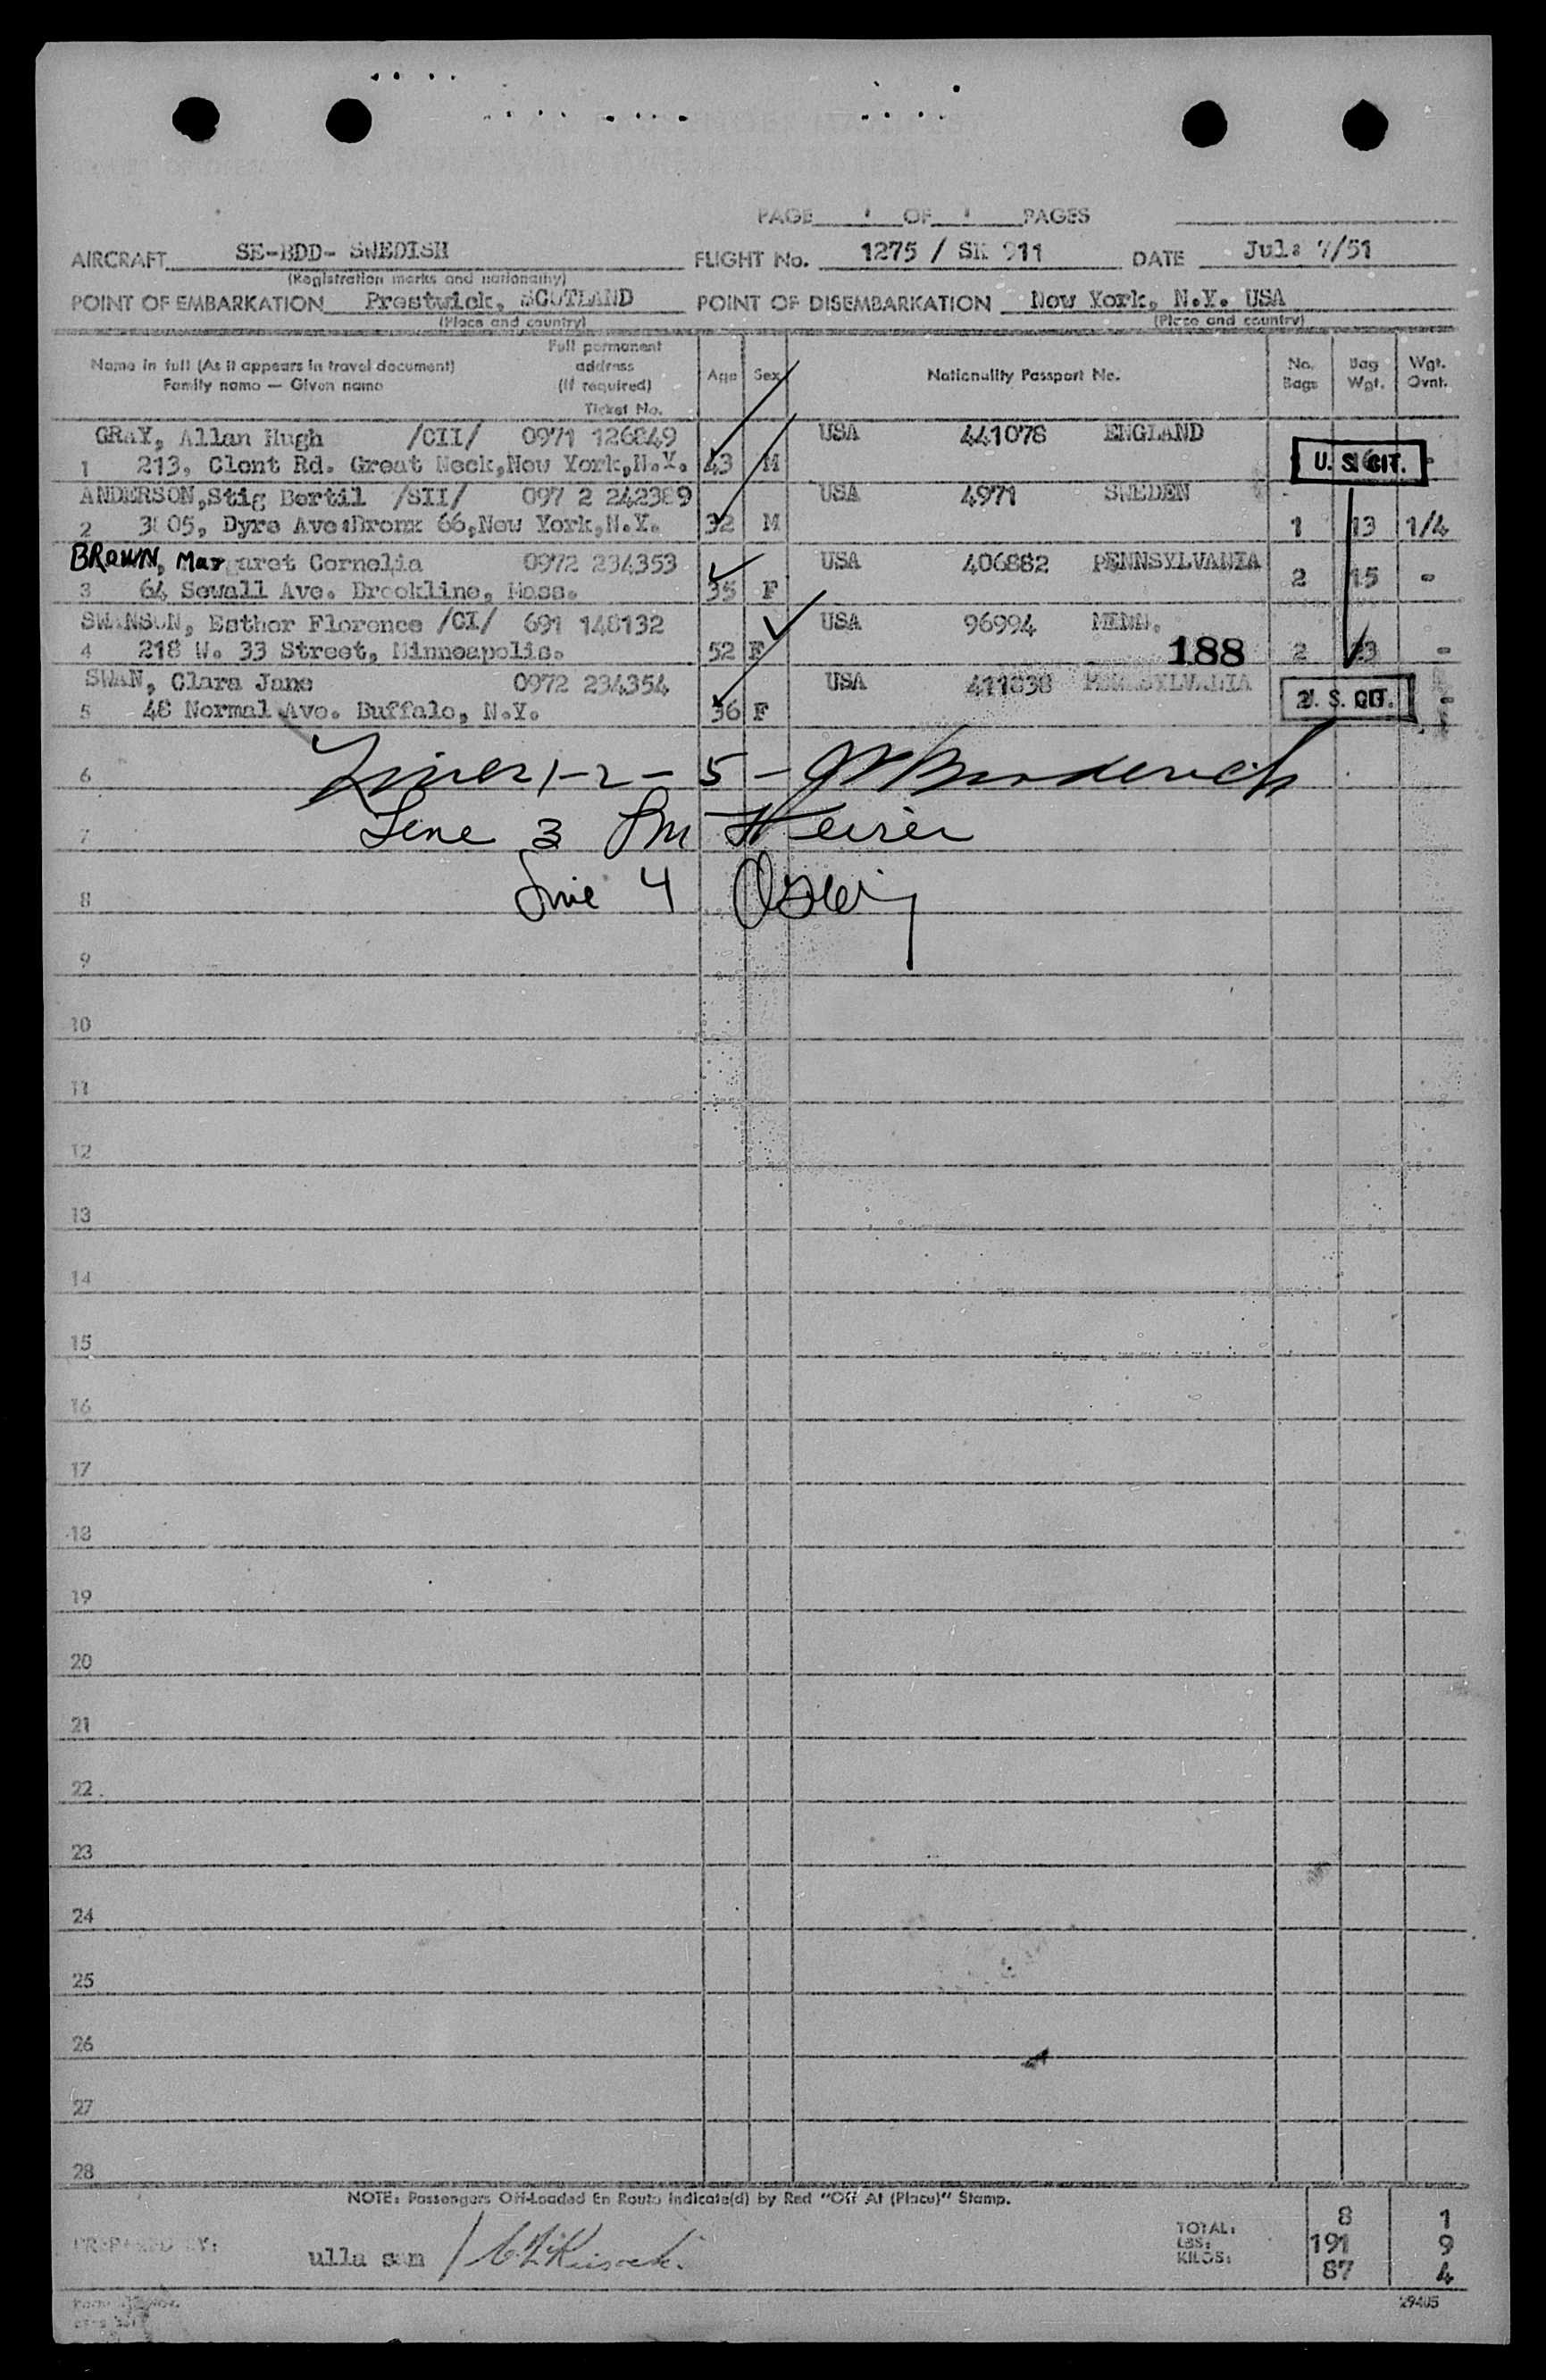 PAGE 1 OF 1 PAGES
AIRCRAFT SE-BDD- SWEDISH FLIGHT No. 1275 / SK 911 DATE Jul: 7/51
(Registration marks and nationality)
POINT OF EMBARKATION Prestwick, SCOTLAND POINT OF DISEMBARKATION New York, N.Y. USA
(Place and country) (Place and country)
Name in full (As it appears in travel document) Family name — Given name Full permanent address (If required) Ticket No. Age Sex Nationality Passport No. No. Bags Bag Wgt. Wgt. Ovnt.
GRAY, Allan Hugh /CII/ 0971 126849 USA 441078 ENGLAND
1 213, Clent Rd. Great Neck, New York, N.Y. 43 M U. S. CIT. -
ANDERSON, Stig Bertil /SII/ 097 2 242389 USA 4971 SWEDEN
2 3805, Dyre Ave:Bronx 66, New York, N.Y. 32 M 1 13 1/4
BROWN, Margaret Cornelia 0972 234353 USA 406882 PENNSYLVANIA
3 64 Sewall Ave. Brookline, Mass. 35 F 2 15 -
SWANSON, Esther Florence /CI/ 691 148132 USA 96994 MINN.
4 218 W. 33 Street, Minneapolis. 52 F 188 2 23 -
SWAN, Clara Jane 0972 234354 USA 411838 PENNSYLVANIA
5 48 Normal Ave. Buffalo, N.Y. 36 F U. S. CIT. -
6 Lines 1-2-5- Broderick
7 Line 3
8 Line 4
9
10
11
12
13
14
15
16
17
18
19
20
21
22
23
24
25
26
27
28
NOTE: Passengers Off-Loaded En Route Indicate(d) by Red "Off At (Place)" Stamp.
TOTAL: 8 1
LBS: 191 9
KILOS: 87 4
PREPARED BY: ulla sam /
29405